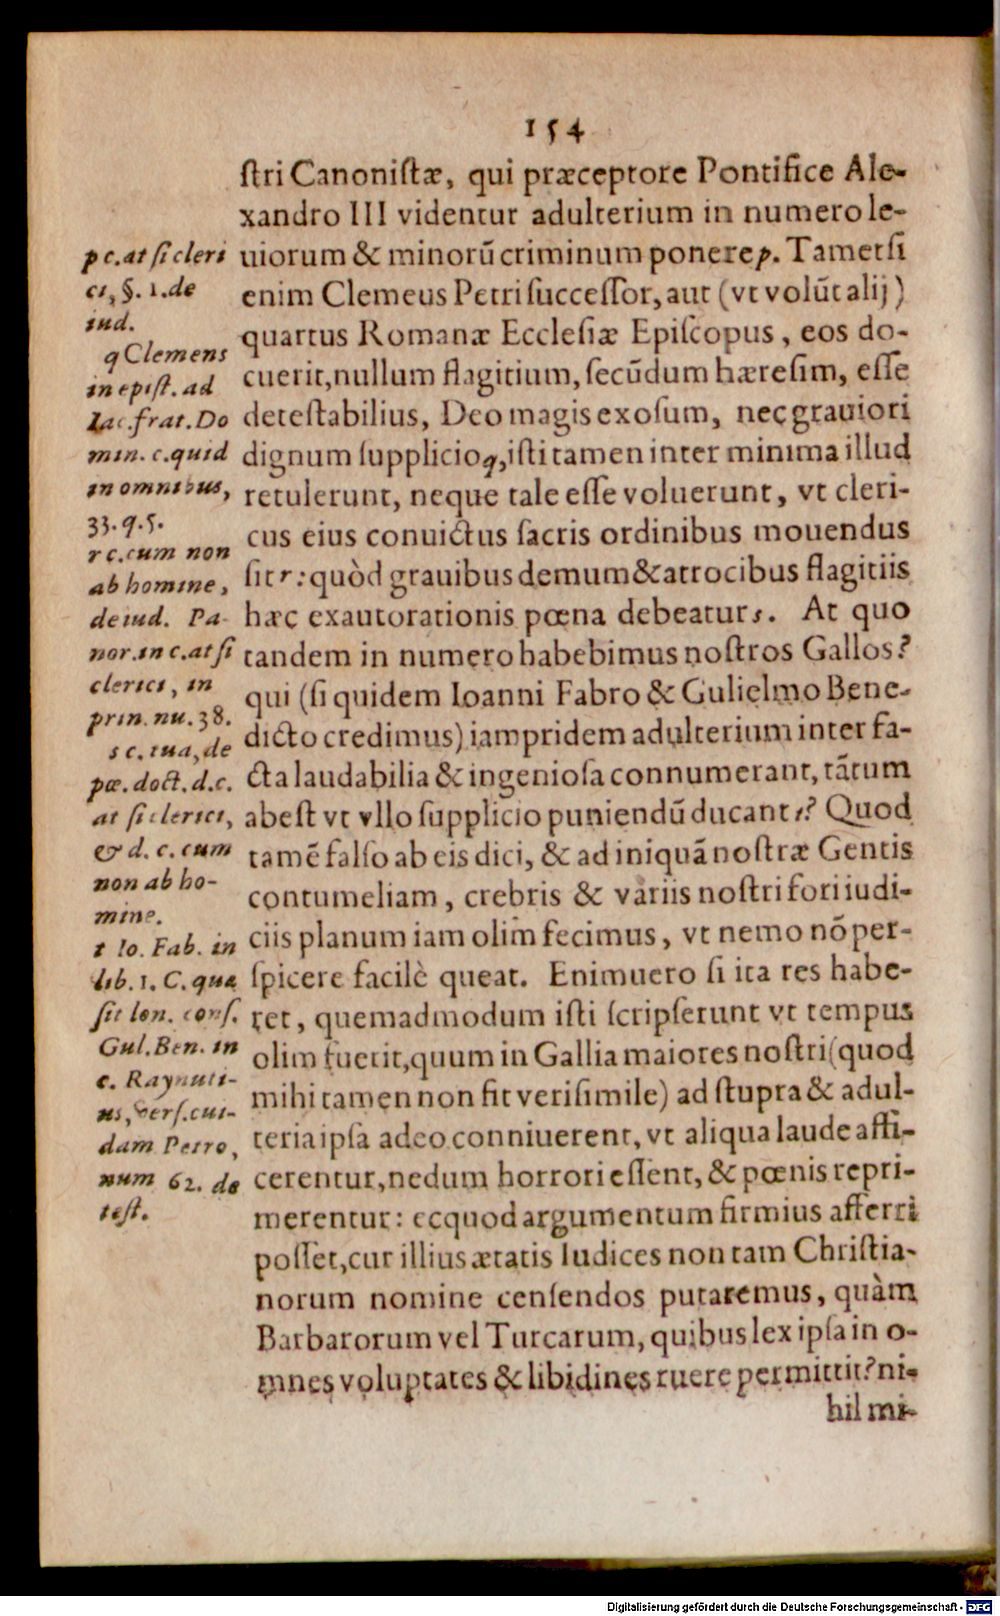 154
ſtri Canoniſtæ, qui præceptore Pontifice Ale-
xandro III videntur adulterium in numero le-
uiorum & minorū criminum ponere p. Tametſi
enim Clemeus Petri ſucceſſor, aut (vt volūt alij)
quartus Romanæ Eccleſiæ Epiſcopus, eos do-
cuerit, nullum flagitium, ſecūdum hæreſim, eſſe
deteſtabilius, Deo magis exoſum, nec grauiori
dignum ſupplicio q, iſti tamen inter minima illud
retulerunt, neque tale eſſe voluerunt, vt cleri-
cus eius conuictus ſacris ordinibus mouendus
ſit r: quòd grauibus demum & atrocibus flagitiis
hæc exautorationis pœna debeatur s. At quo
tandem in numero habebimus noſtros Gallos?
qui (ſi quidem Ioanni Fabro & Gulielmo Bene-
dicto credimus) iampridem adulterium inter fa-
cta laudabilia & ingenioſa connumerant, tātum
abeſt vt vllo ſupplicio puniendū ducant t? Quod
tamē falſo ab eis dici, & ad iniquā noſtræ Gentis
contumeliam, crebris & variis noſtri fori iudi-
ciis planum iam olim fecimus, vt nemo nō per-
ſpicere facilè queat. Enimuero ſi ita res habe-
ret, quemadmodum iſti ſcripſerunt vt tempus
olim fuerit, quum in Gallia maiores noſtri (quod
mihi tamen non fit veriſimile) ad ſtupra & adul-
teria ipſa adeo conniuerent, vt aliqua laude affi-
cerentur, nedum horrori eſſent, & pœnis repri-
merentur: ecquod argumentum firmius afferri
poſſet, cur illius ætatis Iudices non tam Chriſtia-
norum nomine cenſendos putaremus, quàm
Barbarorum vel Turcarum, quibus lex ipſa in o-
mnes voluptates & libidines ruere permittit? ni-
hil mi-
p c. at ſi cleri
ci, §. 1. de
iud.
q Clemens
in epiſt. ad
Iac. frat. Do
min. c. quid
in omnibus,
33. q. 5.
r c. cum non
ab homine,
de iud. Pa-
nor. in c. at ſi
clerici, in
prin. nu. 38.
s c. tua, de
pœ. doct. d. c.
at ſi clerici,
& d. c. cum
non ab ho-
mine.
t Io. Fab. in
lib. 1. C. quæ
ſit lon. conſ.
Gul. Ben. in
c. Raynuti-
us, verſ. cui-
dam Petro,
num 62. de
teſt.
Digitalisierung gefördert durch die Deutsche Forschungsgemeinschaft - DFG